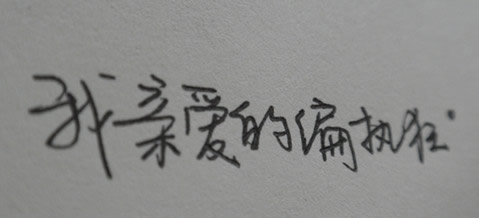 我亲爱的偏执狂